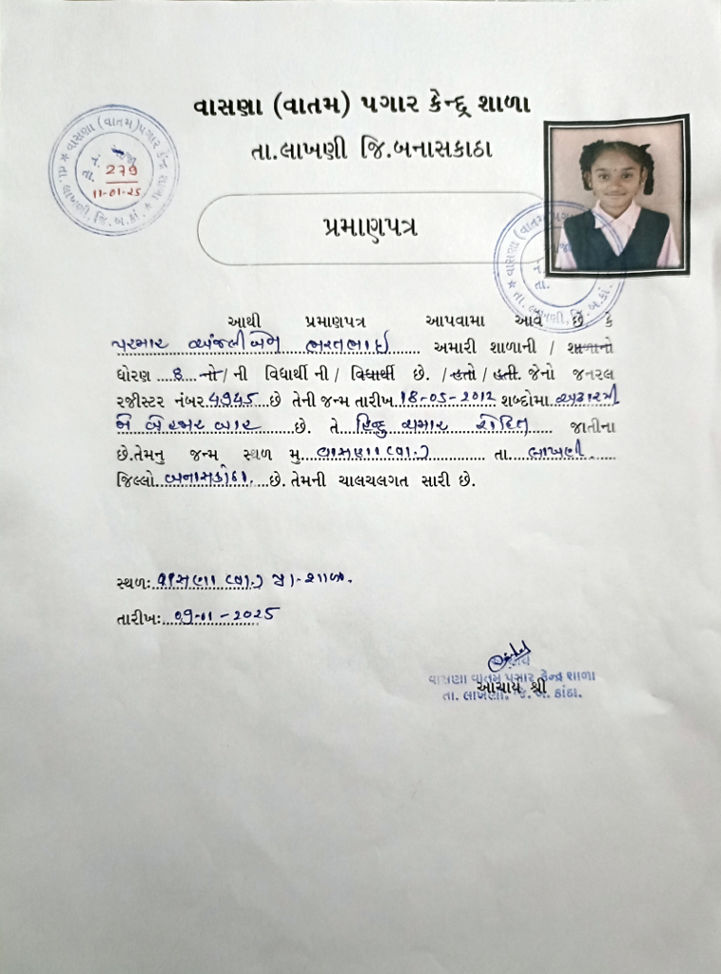 વાસણા (વાતમ) પગાર કેન્દ્ર શાળા
તા.લાખણી જિ.બનાસકાઠા
★ વાસણા (વાતમ) પગાર કેન્દ્ર શાળા ★ તા. લાખણી, જિ. બ.કાં.
નં. 279
તા. 11-01-25
પ્રમાણપત્ર
★ વાસણા (વાતમ) પગાર તા. લાખણી, જિ. બ.કાં.
નં.
તા.
આથી પ્રમાણપત્ર આપવામા આવે છે કે
પરમાર અંજલીબેન ભરતભાઇ અમારી શાળાની / શાળાનો
ધોરણ 8 નો / ની વિદ્યાર્થી ની / વિદ્યાર્થી છે. / હતો / હતી. જેનો જનરલ
રજીસ્ટર નંબર 4945 છે તેની જન્મ તારીખ 18-05-2012 શબ્દોમા અઢારમી
મે બે હજાર બાર છે. તે હિન્દુ ચમાર રોહિત જાતીના
છે.તેમનુ જન્મ સ્થળ મુ વાસણા (વા.) તા. લાખણી
જિલ્લો બનાસકાંઠા. છે. તેમની ચાલચલગત સારી છે.
સ્થળઃ વાસણા (વા.) પ્રા. શાળા.
તારીખઃ 09-11-2025
આચાર્ય
વાસણા વાતમ પગાર કેન્દ્ર શાળા
આચાર્ય શ્રી
તા. લાખણી, જિ. બ. કાંઠા.